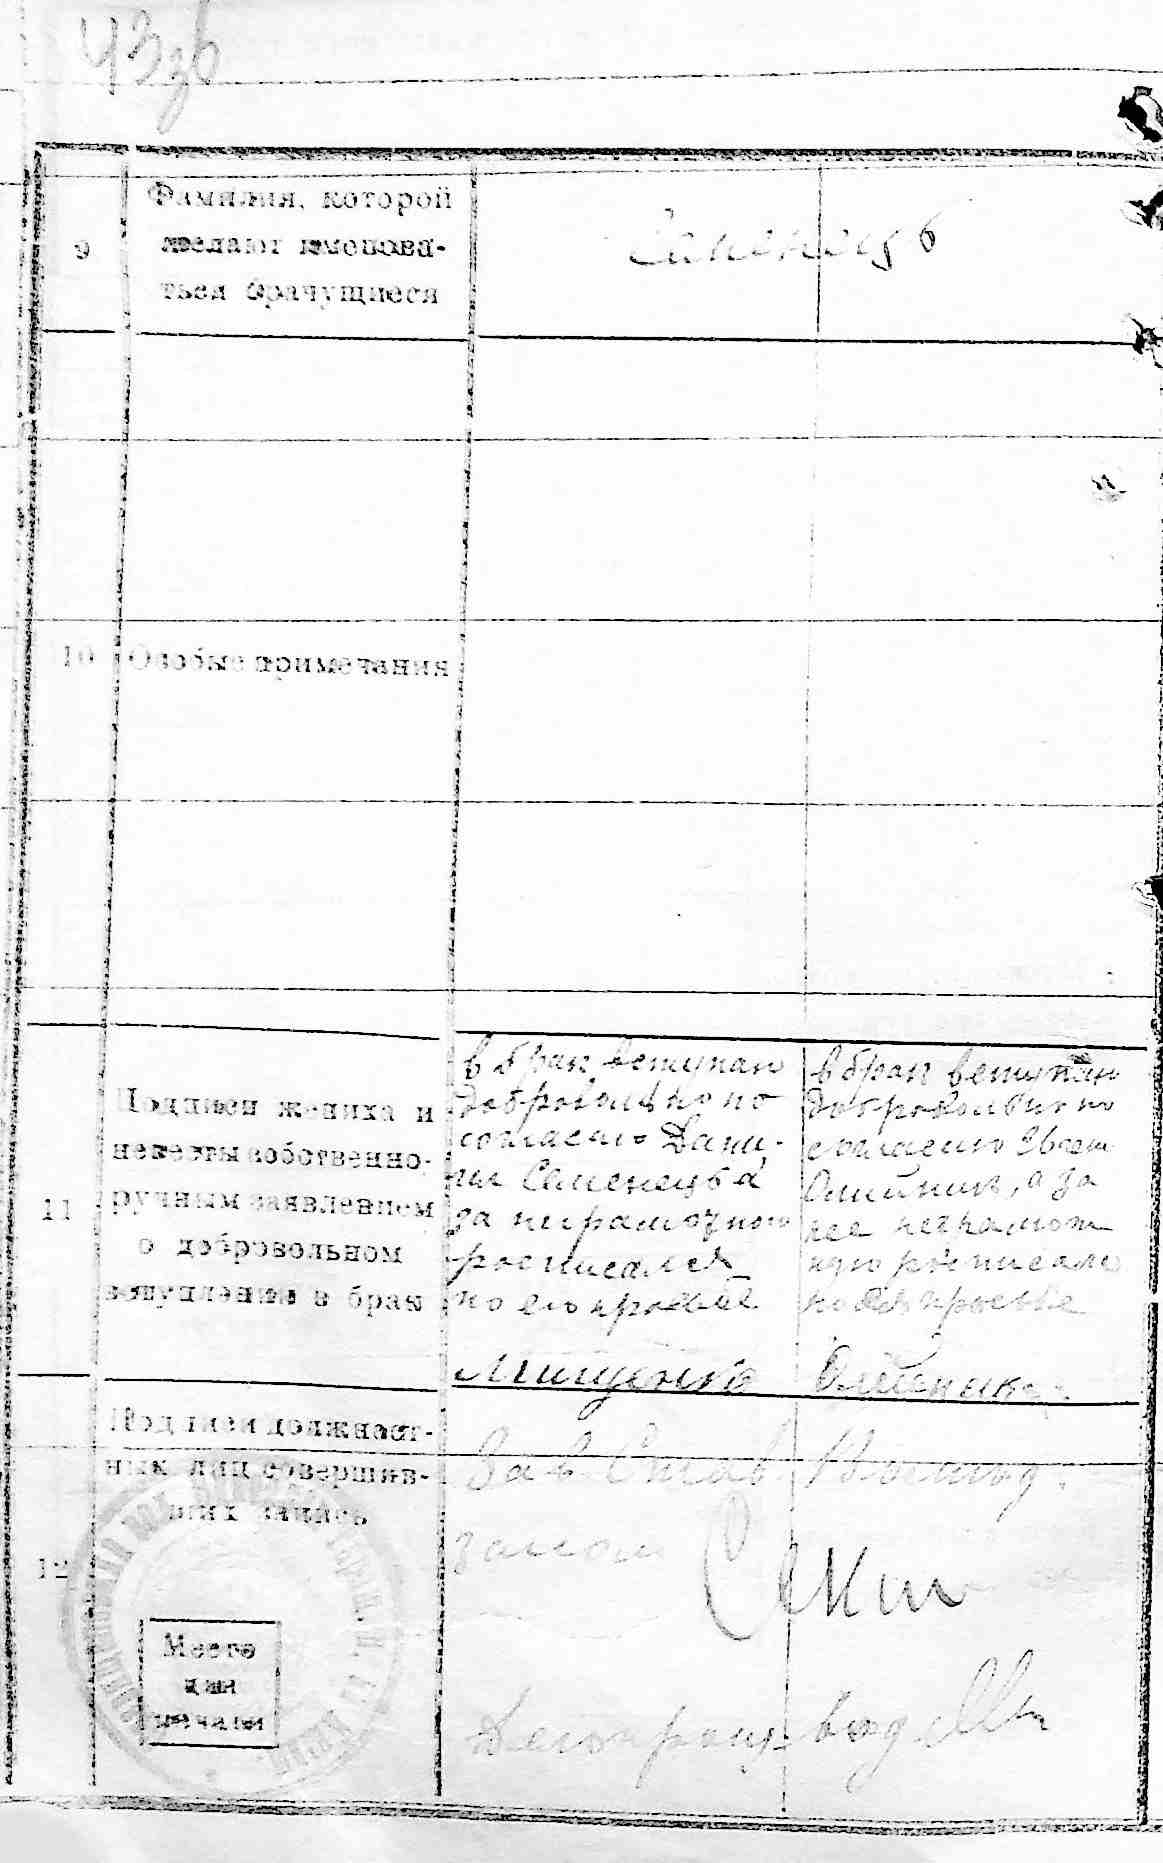 43зв
9
Фамилия, которой
желают именова-
ться брачущиеся
Семенецъ
10 Особые примечания
11
Подписи жениха и
невесты собственно-
ручным заявлением
о добровольном
вступлении в брак
в брак вступаю
добровольно по
согласию Дани-
ил Семенецъ а
за неграмотного
росписался
по его прозьбе
Мищенко
в брак вступаю
добровольно по
согласию
Олийник, а за
нее неграмот
ную росписался
по прозьбе
Олейник
12
Подписи должност-
ных лиц совершив-
ших запись
Место
для
печати
Зав
Делопроизвод